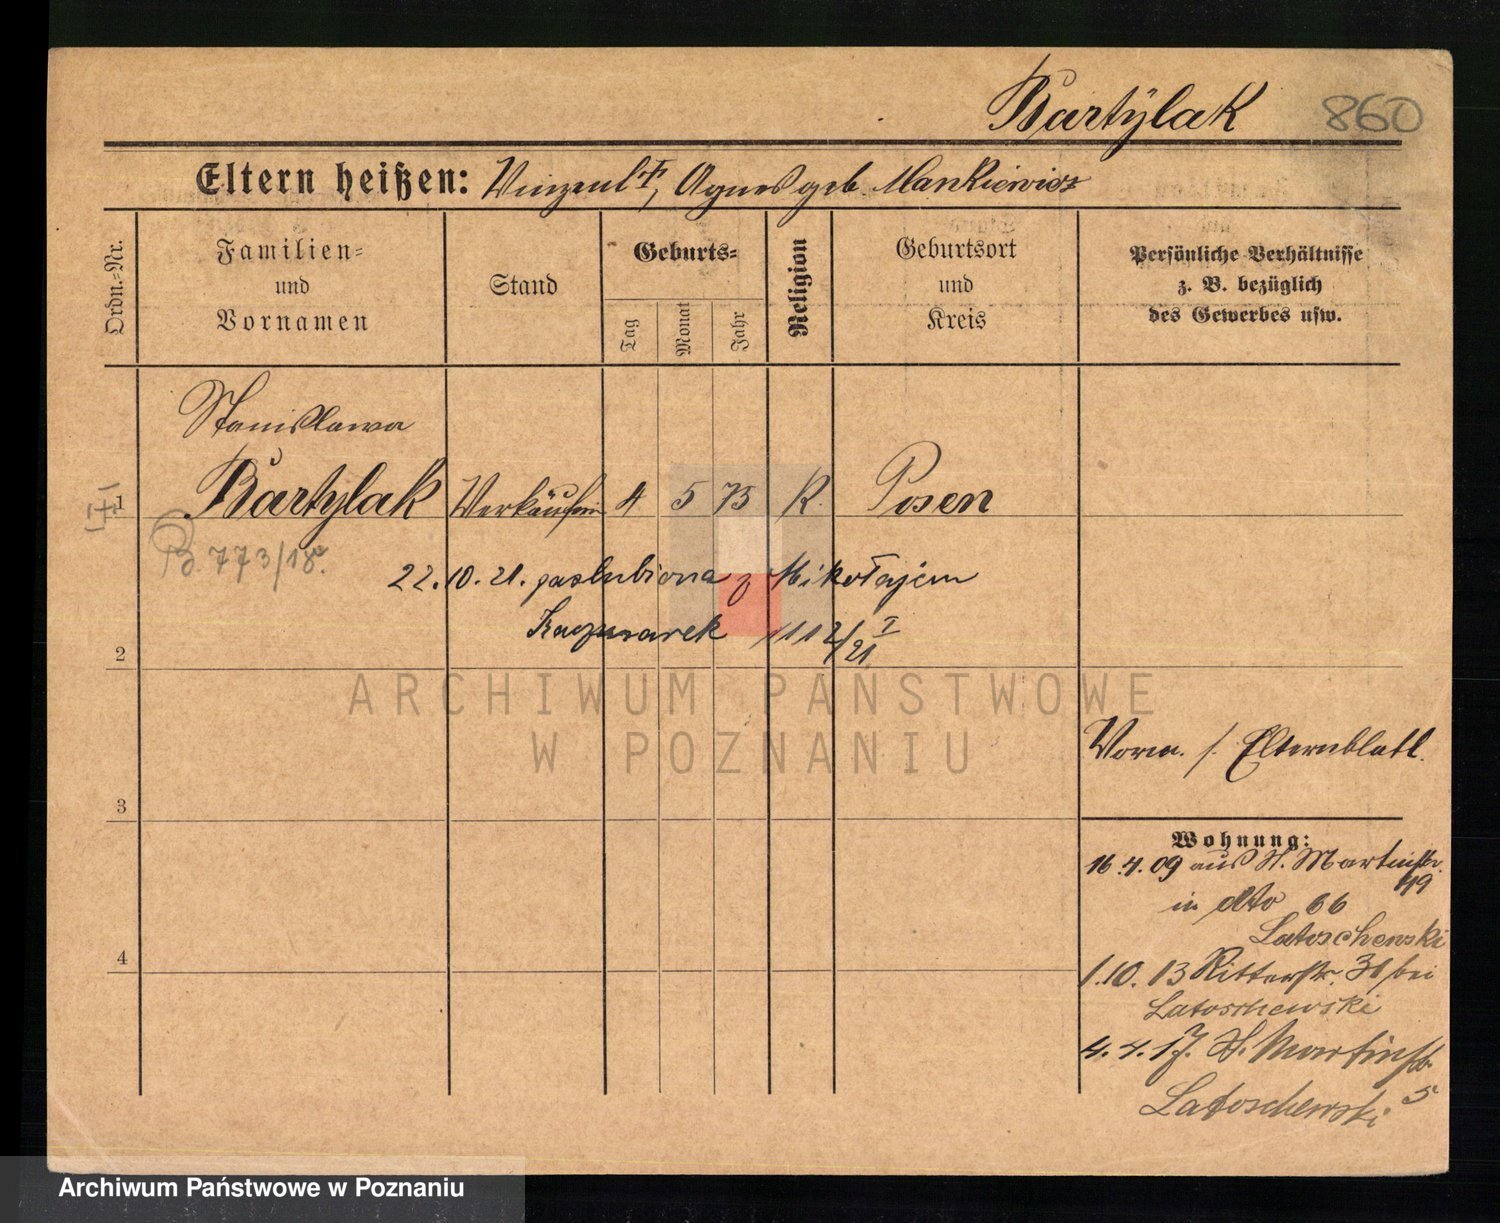 Bartÿlak 860
Eltern heißen: Vinzent †, Agnes geb. Mankiewicz
Ordn.-Nr.
Familien-
und
Vornamen
Stand
Geburts-
Tag
Monat
Jahr
Religion
Geburtsort
und
Kreis
Persönliche Verhältnisse
z. B. bezüglich
des Gewerbes usw.
Stanislawa
1 Bartylak Verkäuferin 4 5 75 R. Posen
B. 773/18.
22.10.21. zaslubiona z Mikołajem
Kaczmarek 1112/21 I
2
ARCHIWUM PAŃSTWOWE
W POZNANIU
Vorm. s. Elternblatt.
3
Wohnung:
16.4.09 aus St. Martinstr.
49
in dto 66
Latoschewski
1.10.13 Ritterstr. 36 bei
Latoschewski
4
4.4.17. St. Martinstr.
5
Latoschewski
Archiwum Państwowe w Poznaniu